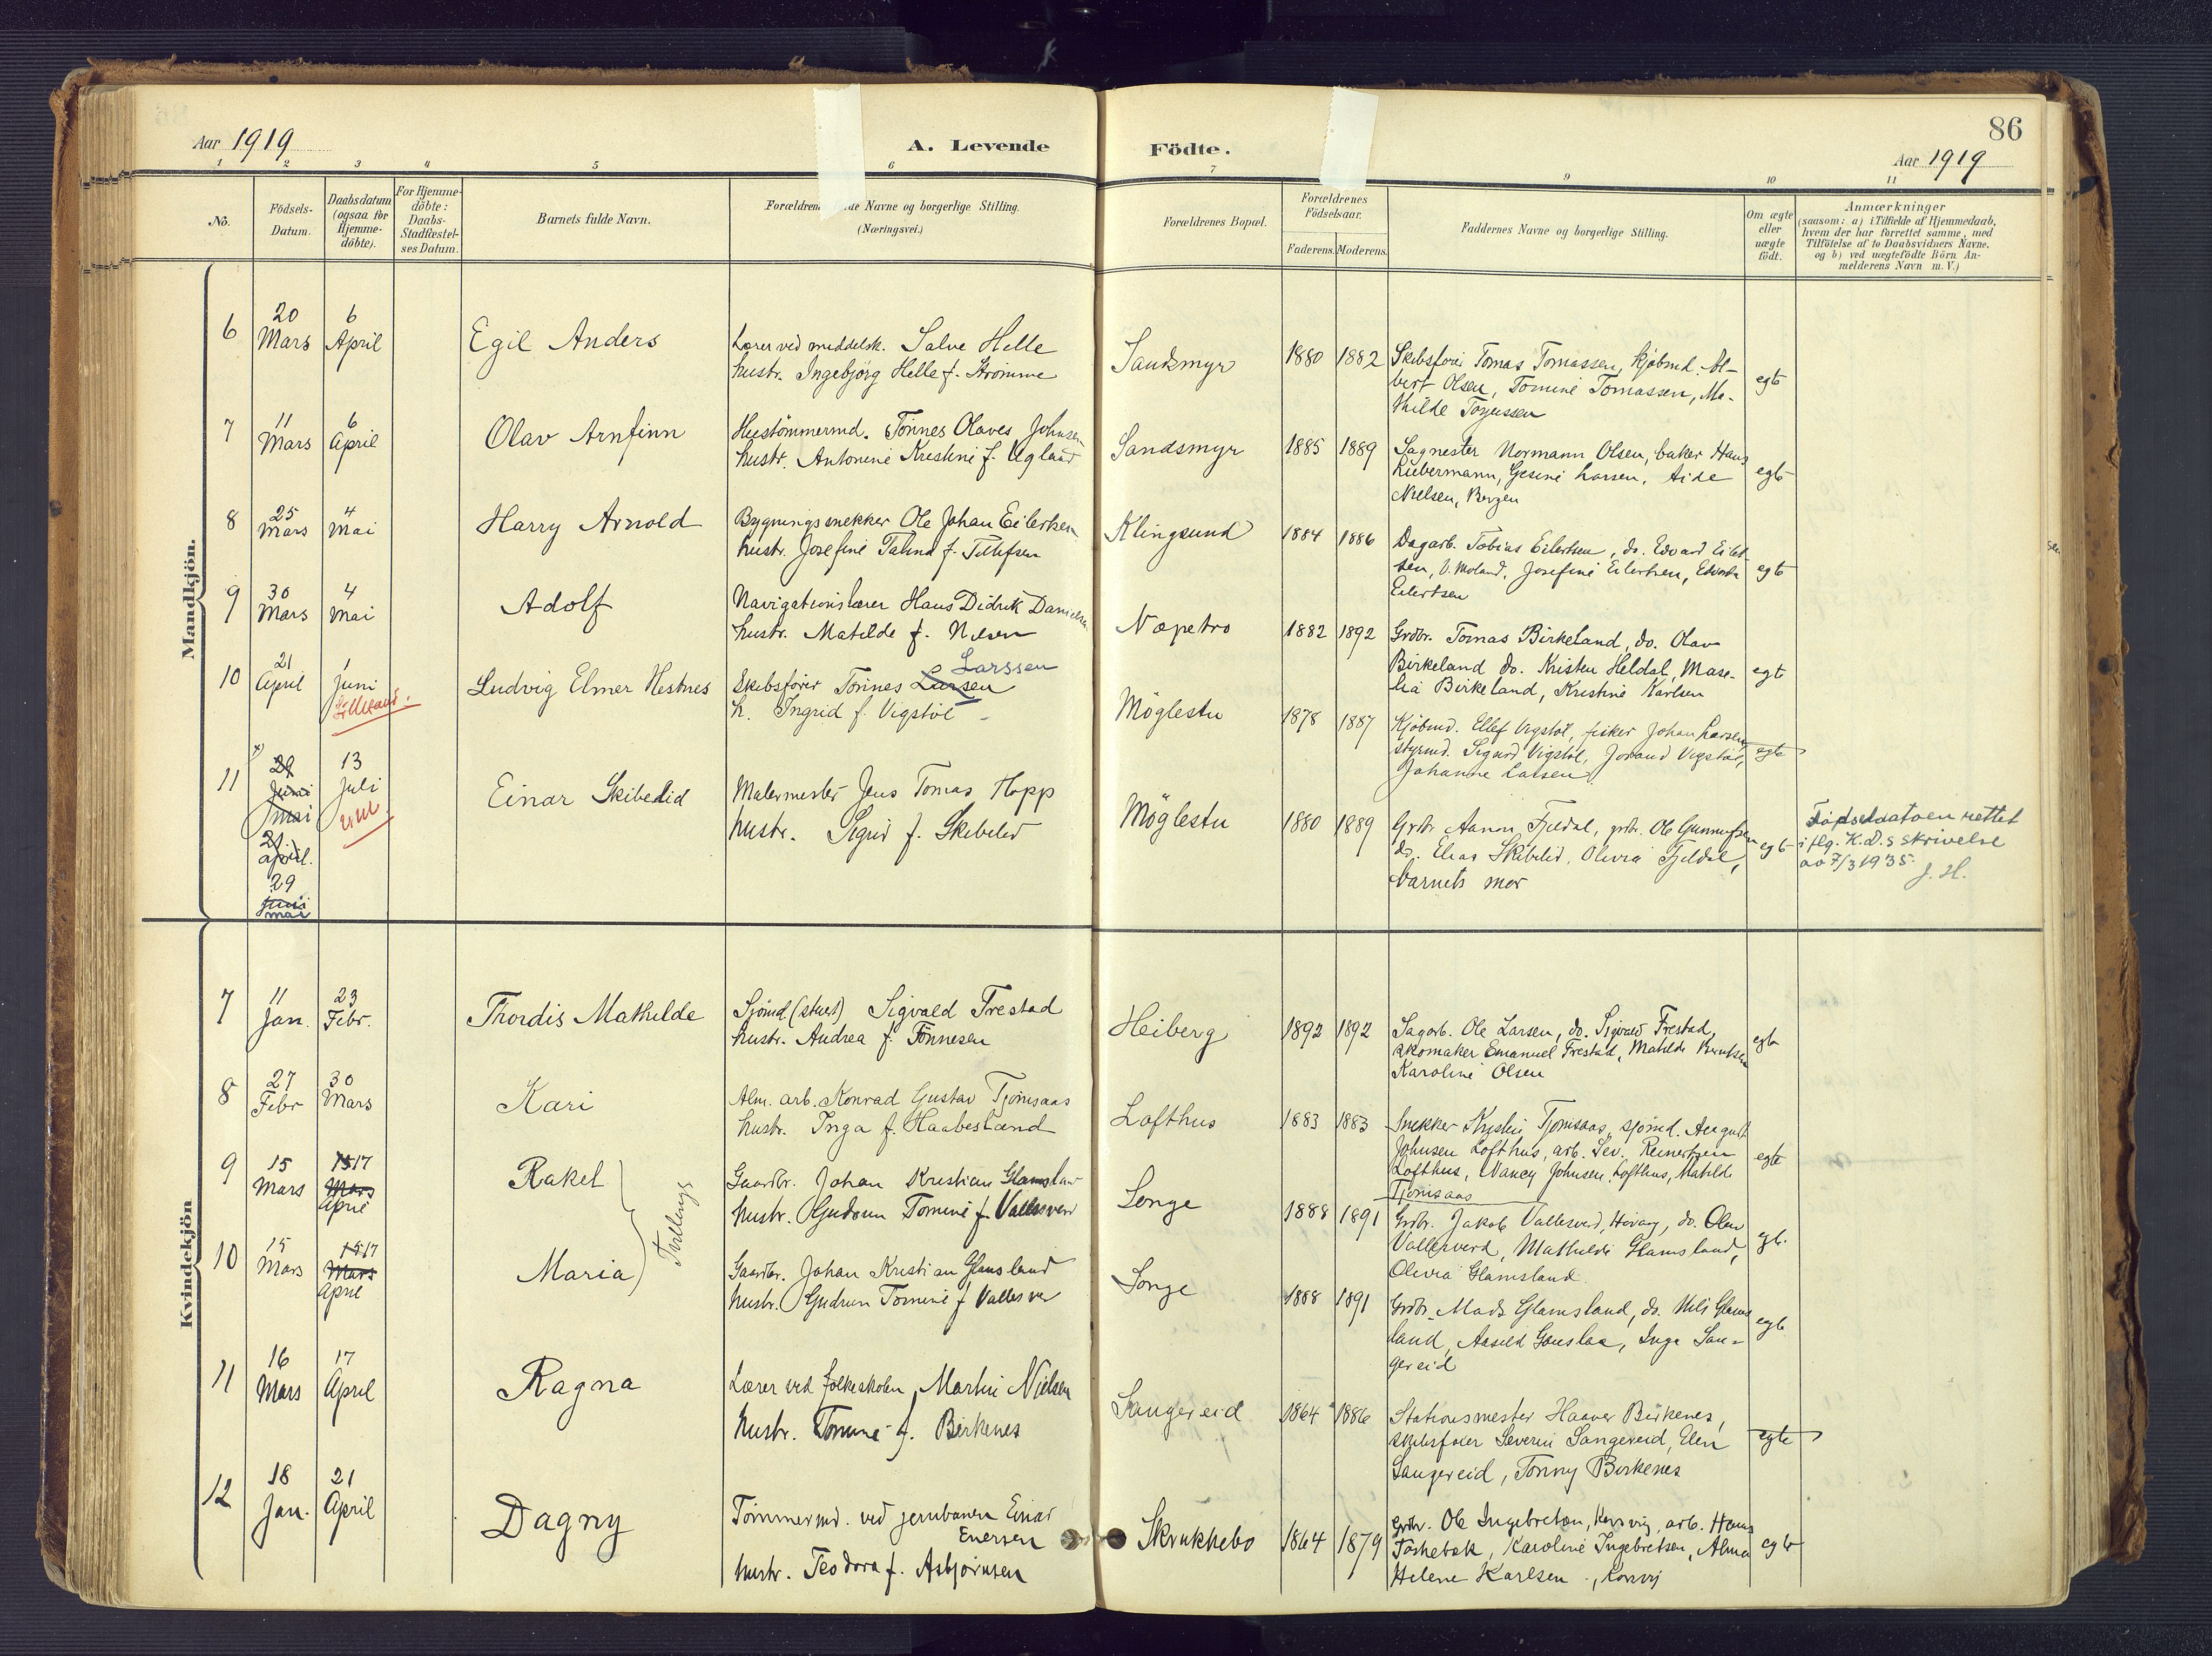 86
Aar 1919
A. Levende Födte.
Aar 1919
1 2 3 4 5 6 7 9 10 11
No.
Födsels-Datum.
Daabsdatum (ogsaa for Hjemme-döbte).
For Hjemme-döbte: Daabs-Stadfæstel-ses Datum.
Barnets fulde Navn.
Navne og borgerlige Stilling.
(Næringsvei.)
Forældrenes Bopæl.
Forældrenes Födselsaar.
Faderens. Moderens.
Faddernes Navne og borgerlige Stilling.
Om ægte eller uægte födt.
Anmærkninger
(saasom: a) i Tilfælde af Hjemmedaab,
hvem der har forrettet samme, med
Tilföielse af to Daabsvidners Navne.
og b) ved uægtefödte Börn An-
melderens Navn m. V.)
Mandkjön.
6 20 Mars 6 April Egil Anders
Lærer ved middelsk. Salve Helle
hustr. Ingebjörg Helle f. Stromme
Sandsmyr 1880 1882
Skibsfører Tomas Tomassen, kjøbmd. Al-
bert Olsen, Tomine Tomassen, Ma-
thilde Torjussen
egt
7 11 Mars 6 April Olav Arnfinn
Hustömmermd. Tönnes Olaves Johnsen
hustr. Antonine Kristine f. Ugland
Sandsmyr 1885 1889
Sagmester Normann Olsen, baker Hans
Liebermann, Gesine Larsen,
Nielsen, Bergen
egt
8 25 Mars 4 Mai Harry Arnold
Bygningssnekker Ole Johan Eilertsen
hustr. Josefine f. Tellefsen
Klingsund 1884 1886
Dagarb. Tobias Eilertsen, do. Edvard Eilert-
sen, V. Moland, Josefine Eilertsen,
Eilertsen
egt
9 30 Mars 4 Mai Adolf
Navigationslærer Hans Didrik Danielsen
hustr. Matilde f. Nilsen
Næpetro 1882 1892
Grdbr. Tomas Birkeland, do. Olav
Birkeland do. Kristen Heldal, Mase-
lia Birkeland, Kristine Karlsen
egt
10 21 April 1 Juni Ludvig Elmer Hestnes
Larssen
Skibsfører Tönnes Larsen
h. Ingrid f. Vigstöl
Möglestu 1878 1887
Kjøbmd. Ellef Vigstöl, fisker Johan Larsen
styrmd. Sigurd Vigstöl, Jorand Vigstöl,
Johanne Larsen
egt
11 29 Juni mai 21 april. 29 Juni mai 13 Juli Einar Skibelid
Malermester Jens Tomas Hopp
hustr. Sigrid f. Skibelid
Möglestu 1880 1889
Grbr Aanon Fjeldal, grbr. Ole Gunnufsen
do. Elias Skibelid, Olivia Fjeldal,
barnets mor
egt
Födselsdatoen rettet
iflg. K.D.s skrivelse
av 7/3 1935. J. H.
Kvindekjön
7 11 Jan. 23 Febr. Thordis Mathilde
Sjömd (stuert) Sigvald Frestad
hustr. Andrea f. Tönnesen
Heiberg 1892 1892
Sagarb. Ole Larsen, do. Sigvald Frestad,
skomaker Emanuel Frestad, Matilde Berntsen
Karoline Olsen
egte
8 27 Febr 30 Mars Kari
Alm. arb. Konrad Gustav Tjömsaas
hustr. Inga f. Haabesland
Lofthus 1883 1883
Snekker Tjömsaas, sjömd. August
Johnsen Lofthus, arb. Sev. Reinertsen
Lofthus, Nancy Johnsen Lofthus, Matilde
Tjömsaas
egte
9 15 Mars 15 17 Mars April Rakel
Tvillinger
Gaardbr. Johan Kristian Glamsland
hustr. Gudrun Tomine f. Vallesverd
Songe 1888 1891
Grdbr. Jakob Vallesverd, Høvaag, do. Olav
Vallesverd, Mathilde Glamsland,
Olivia Glamsland.
egt.
10 15 Mars 15 17 Mars April Maria
Gaardbr. Johan Kristian Glamsland
hustr. Gudrun Tomine f Vallesver
Songe 1888 1891
Grdbr. Mads Glamsland, do. Nils Glams
land, Aasild Gauslaa, Inga San-
gereid
egte
11 16 Mars 17 April Ragna
Lærer ved folkeskolen Martin Nielsen
hustr. Tomine f. Birkenes
Sangereid 1864 1886
Stationsmester Haaver Birkenes,
skibsfører Severin Sangereid, Elen
Sangereid, Tonny Birkenes
egte
12 18 Jan. 21 April Dagny
Tömmermd. ved jernbanen Einar
Enersen
hustr. Teodora f. Asbjörnsen
Skrukkebo 1864 1879
Grdbr. Ole Ingebretsen, arb. Hans
Karoline Ingebretsen, Alma
Helene Karlsen
egte